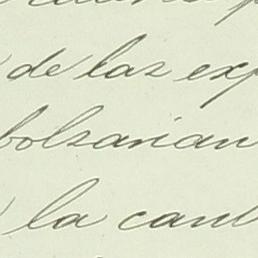 de las exp
bolsarian
la cant